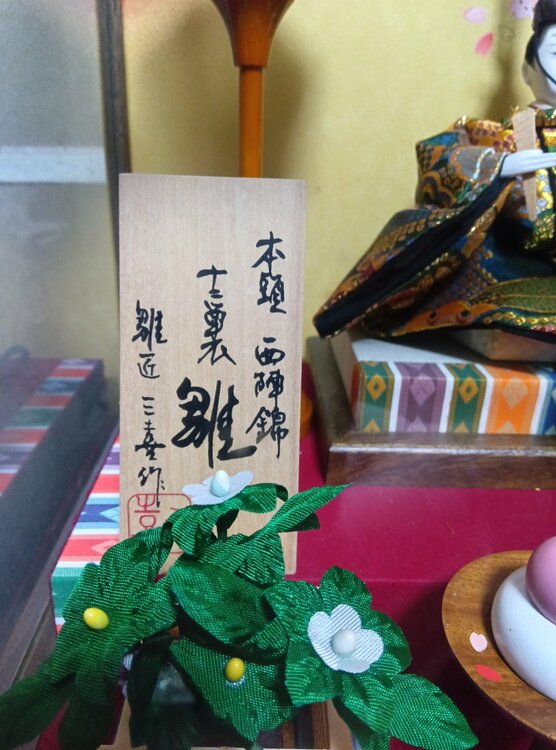 本頭 西陣錦
十二単衣 雛
雛匠 三喜作